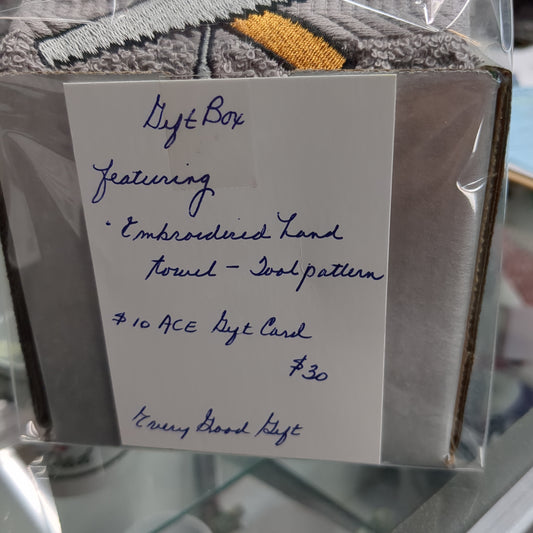 Gift Box
featuring
• Embroidered hand
towel - Tool pattern
$10 ACE Gift Card
$30
Every Good Gift